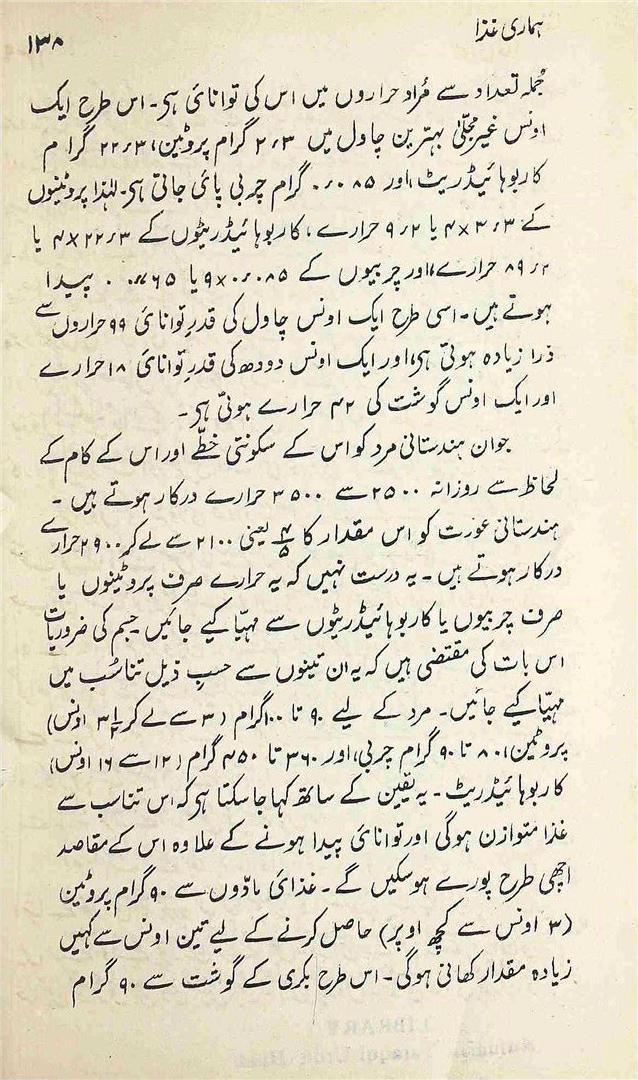 ہماری غذا
۱۳۸
جُملہ تعداد سے مُراد حراروں میں اس کی توانائ ہی۔ اس طرح ایک
اونس غیر مجلّیٰ بہترین چاول میں ۲٫۳ گرام پروٹین، ۲۲٫۳ گرام
کاربوہائیڈریٹ، اور ۰٫۰۸۵ گرام چربی پائ جاتی ہی۔ لہٰذا پروٹینوں
کے ۲٫۳ × ۴ یا ۹٫۲ حرارے، کاربوہائیڈریٹوں کے ۲۲٫۳ × ۴ یا
۸۹٫۲ حرارے، اور چربیوں کے ۰٫۰۸۵ × ۹ یا ۰٫۷۶۵ پیدا
ہوتے ہیں۔ اسی طرح ایک اونس چاول کی قدرِ توانائ ۹۹ حراروں سے
ذرا زیادہ ہوتی ہی، اور ایک اونس دودھ کی قدرِ توانائ ۱۸ حرارے
اور ایک اونس گوشت کی ۴۲ حرارے ہوتی ہی۔
جوان ہندستانی مرد کو اس کے سکونتی خطّے اور اس کے کام کے
لحاظ سے روزانہ ۲۵۰۰ سے ۳۵۰۰ حرارے درکار ہوتے ہیں۔
ہندستانی عورت کو اس مقدار کا ۴/۵ یعنی ۲۱۰۰ سے لے کر ۲۹۰۰ حرارے
درکار ہوتے ہیں۔ یہ درست نہیں کہ یہ حرارے صرف پروٹینوں یا
صرف چربیوں یا کاربوہائیڈریٹوں سے مہیّا کیے جائیں۔ جسم کی ضروریات
اس بات کی مقتضی ہیں کہ یہ ان تینوں سے حسبِ ذیل تناسُب میں
مہیّا کیے جائیں۔ مرد کے لیے ۹۰ تا ۱۰۰ گرام (۳ سے لے کر ۳½ اونس)
پروٹین، ۸۰ تا ۹۰ گرام چربی، اور ۳۶۰ تا ۴۵۰ گرام (۱۲ سے ۱۶ اونس)
کاربوہائیڈریٹ۔ یہ یقین کے ساتھ کہا جاسکتا ہی کہ اس تناسب سے
غذا متوازن ہوگی اور توانائ پیدا ہونے کے علاوہ اس کے مقاصد
اچھی طرح پورے ہوسکیں گے۔ غذائ مادّوں سے ۹۰ گرام پروٹین
(۳ اونس سے کچھ اوپر) حاصل کرنے کے لیے تین اونس سے کہیں
زیادہ مقدار کھانی ہوگی۔ اس طرح بکری کے گوشت سے ۹۰ گرام